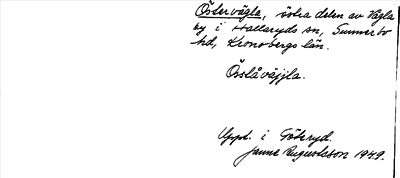 Östervägla, östra delen av Vägla
by i Hallaryds sn, Sunnerbo
hd, Kronobergs län.
Össlåväjjla.
Uppt. i Göteryd.
Janne Augustsson 1949.